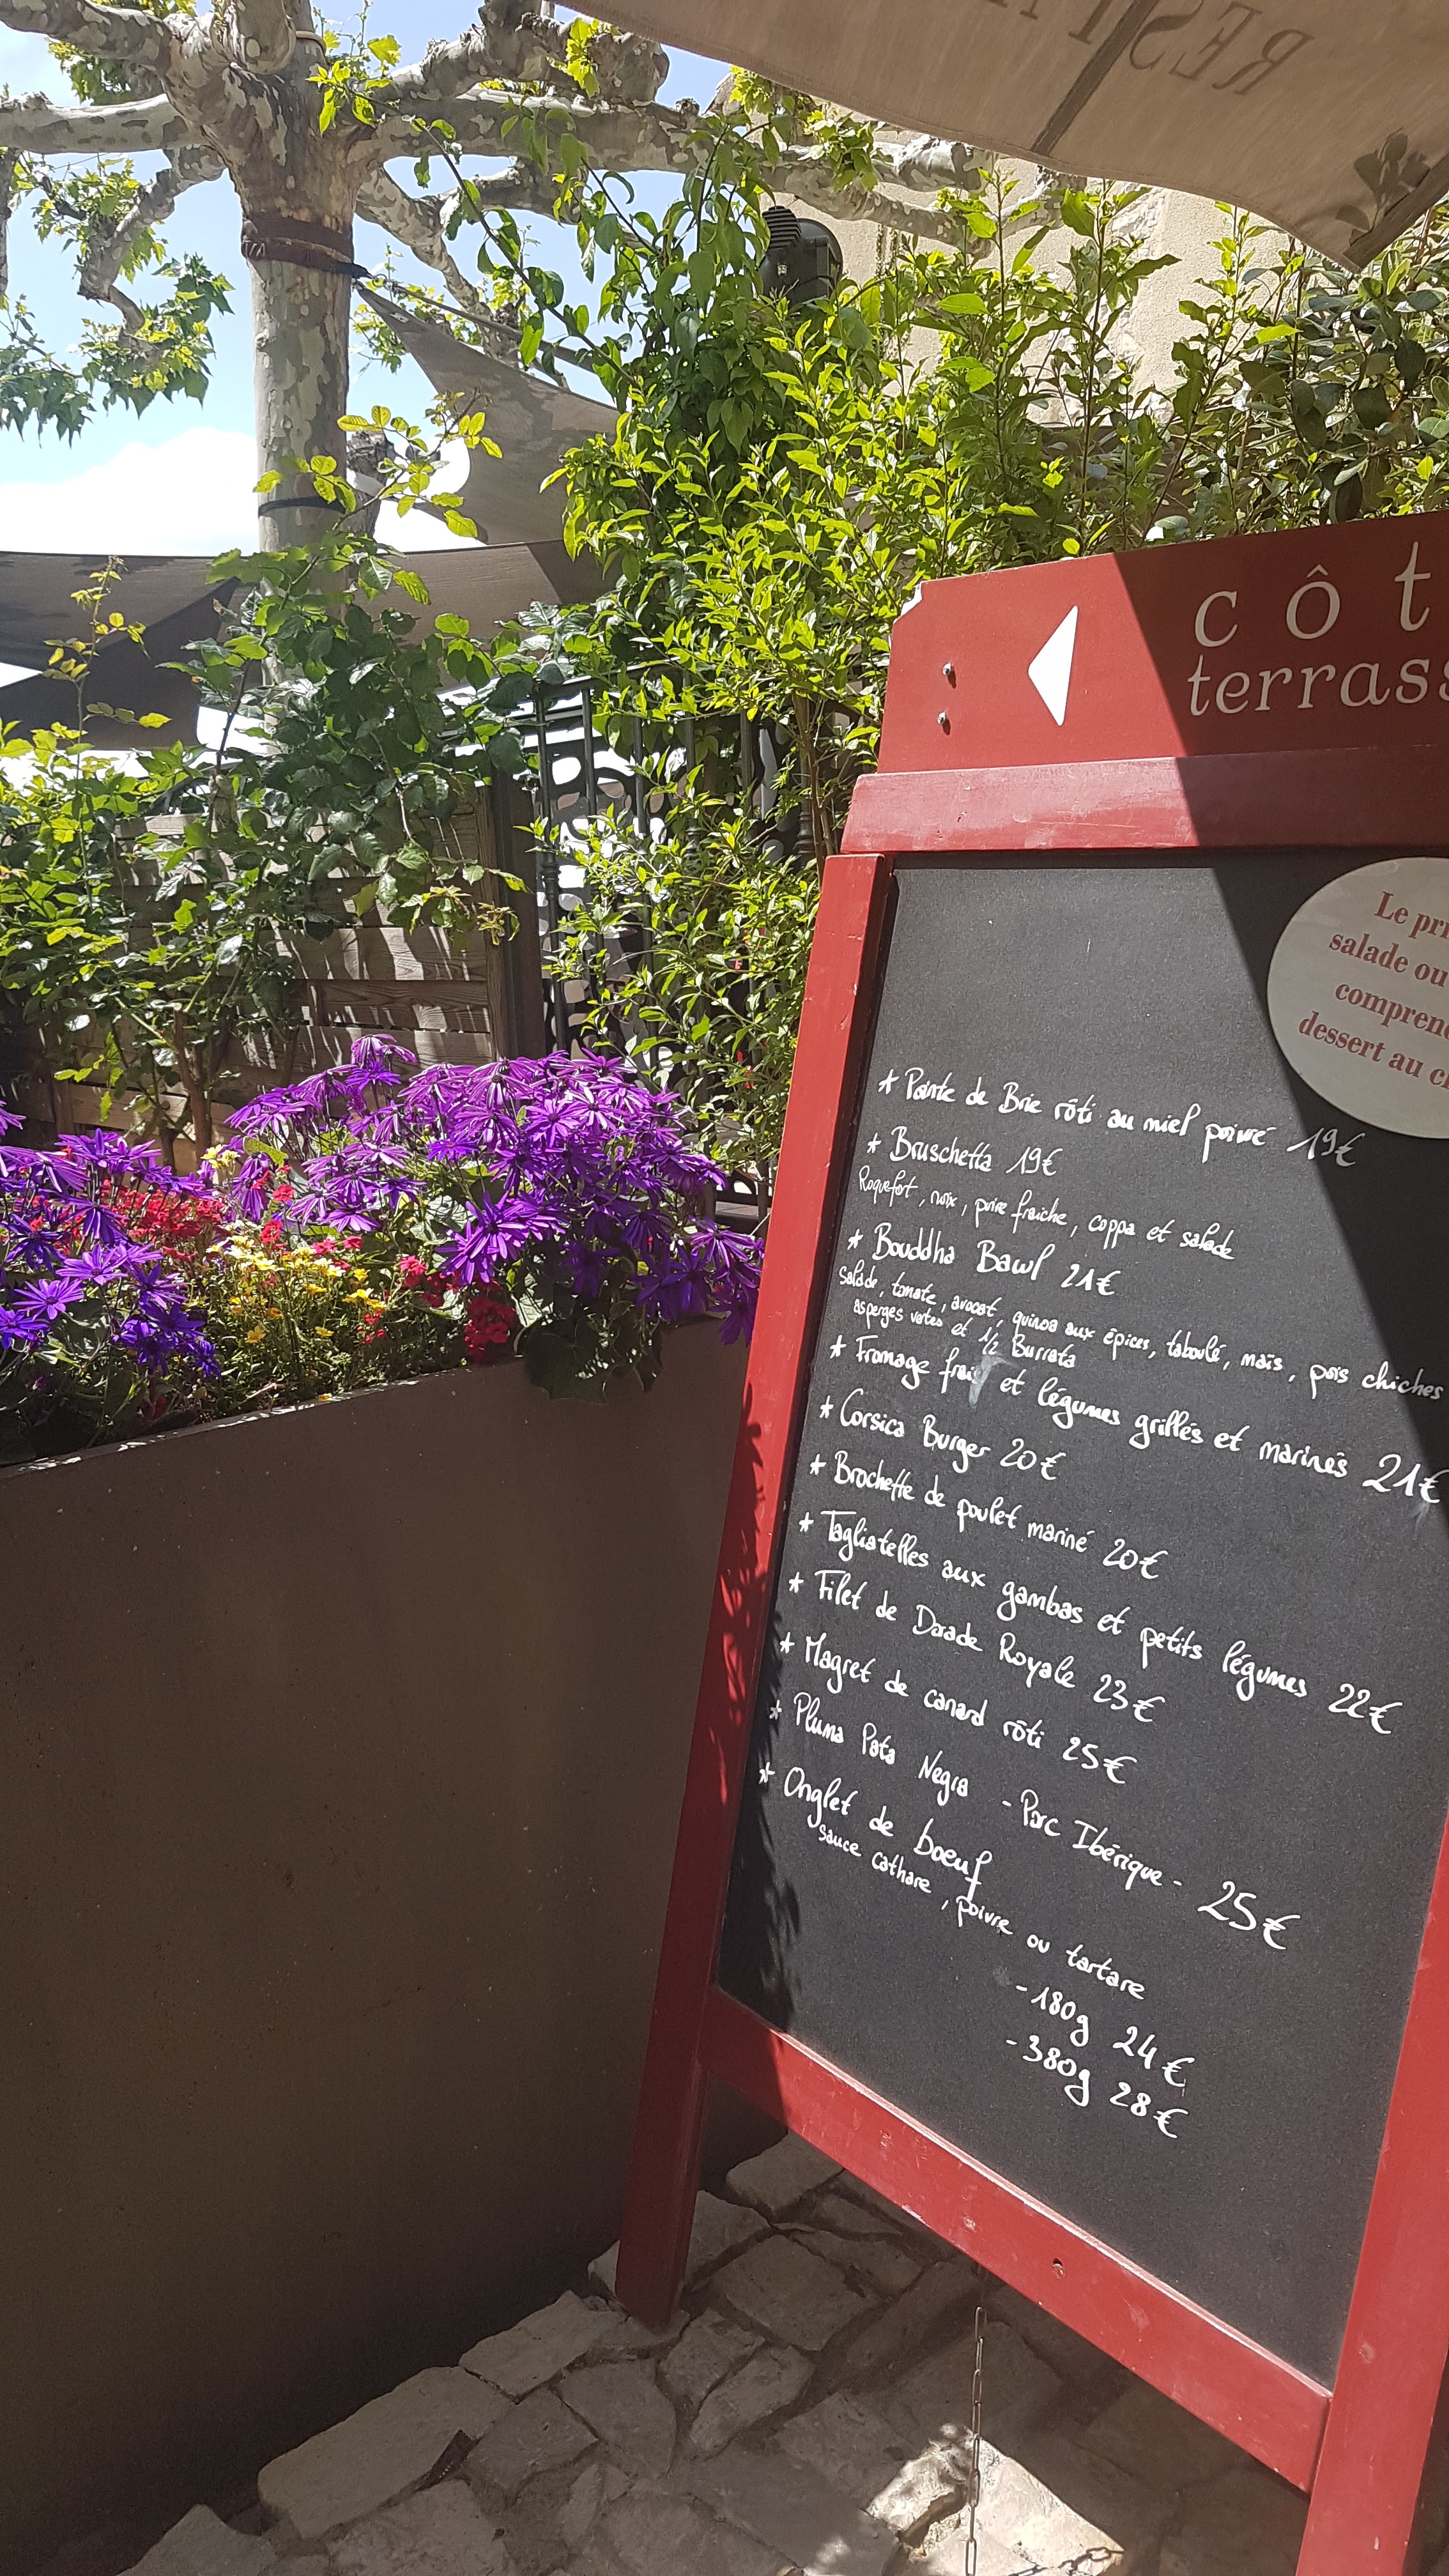 REST
côt
terrass
Le pri
salade ou
compren
dessert au c
* Pointe de Brie rôti au miel poivré 19€
* Bruschetta 19€
Roquefort, noix, poire fraiche, coppa et salade
* Bouddha Bawl 21€
Salade, tomate, avocat, quinoa aux épices, taboulé, maïs, pois chiches
asperges vertes et 1/2 Burrata
* Fromage frais et légumes grillés et marinés 21€
* Corsica Burger 20€
* Brochette de poulet mariné 20€
* Tagliatelles aux gambas et petits légumes 22€
* Filet de Dorade Royale 23€
* Magret de canard rôti 25€
* Pluma Pata Negra - Porc Ibérique - 25€
* Onglet de boeuf
sauce cathare, poivre ou tartare
- 180g 24€
- 380g 28€